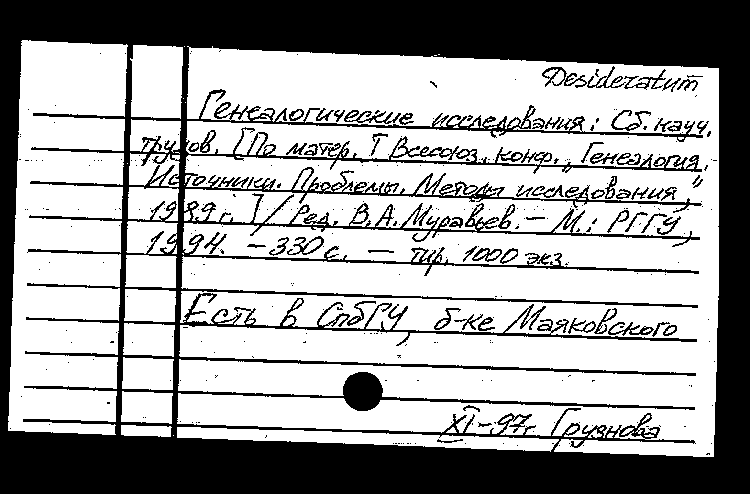 Desideratum
Генеалогические исследования: Сб. науч.
трудов. [По матер. I Всесоюз. конф. „Генеалогия.
Источники. Проблемы. Методы исследования,"
1989 г.] / Ред. В.А. Муравьев. – М.: РГГУ,
1994. – 330 с. — тир. 1000 экз.
Есть в СпбГУ, б-ке Маяковского
XI-97г Грузнова